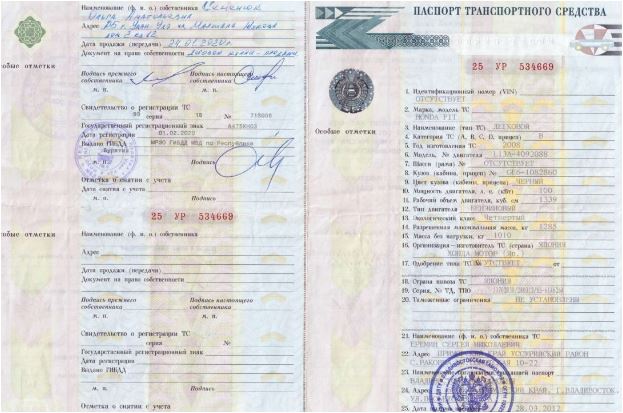 Наименование (ф. и. о.) собственника Семенюк
Ольга Анатольевна
Адрес РБ г. Улан-Удэ ул. Маршала Жукова
Дата продажи (передачи) 24.01.2020г
Документ на право собственности договор купли-продажи
особые отметки
Подпись прежнего собственника
Подпись настоящего собственника
М. П.
М. П.
Свидетельство о регистрации ТС
серия № 718808
Государственный регистрационный знак
Дата регистрации 01.02.2020
Выдано ГИБДД МРЭО ГИБДД МВД по Республике
Бурятия
М. П.
Подпись
Отметка о снятии с учета
Дата снятия с учета
М. П.
Подпись
25 УР 534669
особые отметки
Наименование (ф. и. о.) собственника
Адрес
Дата продажи (передачи)
Документ на право собственности
Подпись прежнего собственника
Подпись настоящего собственника
М. П.
М. П.
Свидетельство о регистрации ТС
серия №
Государственный регистрационный знак
Дата регистрации
Выдано ГИБДД
М. П.
Подпись
Отметка о снятии с учета
ПАСПОРТ ТРАНСПОРТНОГО СРЕДСТВА
25 УР 534669
Особые отметки
1. Идентификационный номер (VIN)
ОТСУТСТВУЕТ
2. Марка, модель ТС
HONDA FIT
3. Наименование (тип ТС) ЛЕГКОВОЙ
4. Категория ТС (А, В, С, D, прицеп) B
5. Год изготовления ТС 2008
6. Модель, № двигателя L13A-4092088
7. Шасси (рама) № ОТСУТСТВУЕТ
8. Кузов (кабина, прицеп) № GE6-1082860
9. Цвет кузова (кабины, прицепа) ЧЕРНЫЙ
10. Мощность двигателя, л. с. (кВт) 100
11. Рабочий объем двигателя, куб. см 1339
12. Тип двигателя БЕНЗИНОВЫЙ
13. Экологический класс Четвертый
14. Разрешенная максимальная масса, кг 1285
15. Масса без нагрузки, кг 1010
16. Организация-изготовитель ТС (страна) ЯПОНИЯ
ХОНДА МОТОР (Яп.)
17. Одобрение типа ТС №
18. Страна вывоза ТС ЯПОНИЯ
19. Серия, № ТД, ТПО
20. Таможенные ограничения НЕ УСТАНОВЛЕНЫ
21. Наименование (ф. и. о.) собственника ТС
ЕРЕМИН СЕРГЕЙ НИКОЛАЕВИЧ
22. Адрес КРАЙ УССУРИЙСКИЙ РАЙОН
10-22
23. Наименование организации, выдавшей паспорт
24. Адрес КРАЙ, Г.ВЛАДИВОСТОК,
25. Дата выдачи паспорта 28.03.2012